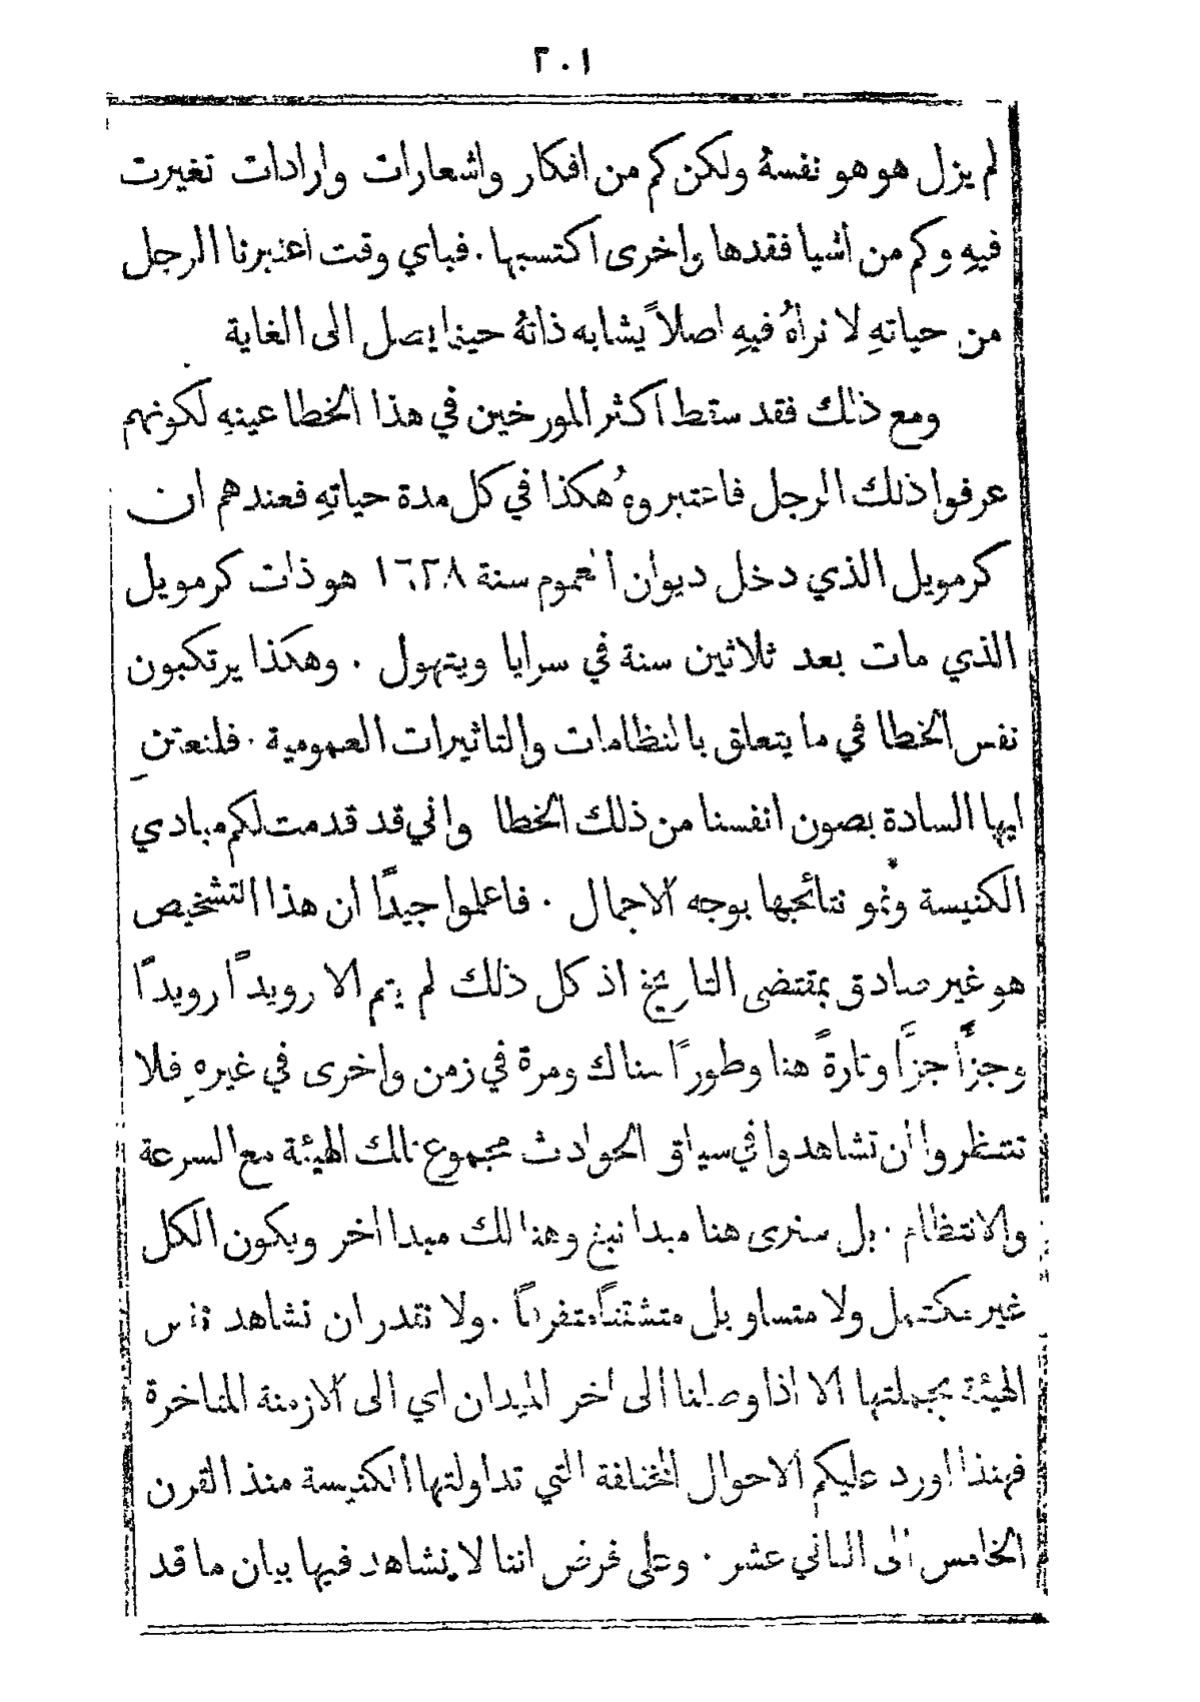 ٢٠١
لم يزل هو هو نفسهُ ولكن كم من افكار واشعارات وارادات تغيرت
فيهِ وكم من اشيا فقدها واخرى اكتسبها . فباي وقت اعتبرنا الرجل
من حياتهِ لا نراهُ فيهِ اصلاً يشابه ذاتهُ حينما يصل الى الغاية
ومع ذلك فقد سقط اكثر المورخين في هذا الخطا عينهِ لكونهم
عرفوا ذلك الرجل فاعتبروهُ هكذا في كل مدة حياتهِ فعندهم ان
كرمويل الذي دخل ديوان العموم سنة ١٦٢٨ هو ذات كرمويل
الذي مات بعد ثلاثين سنة في سرايا ويتهول . وهكذا يرتكبون
نفس الخطا في ما يتعلق بالنظامات والتاثيرات العمومية . فلنعتنِ
ايها السادة بصون انفسنا من ذلك الخطا واني قد قدمت لكم مبادي
الكنيسة ونمو نتائجها بوجه الاجمال . فاعلموا جيدًا ان هذا التشخيص
هو غير صادق بمقتضى التاريخ اذ كل ذلك لم يتم الا رويدًا رويدًا
وجزًا جزًا وتارةً هنا وطورًا هناك ومرة في زمن واخرى في غيرهِ فلا
تنتظروا ان تشاهدوا في سياق الحوادث مجموع تلك الهيئة مع السرعة
والانتظام . بل سنرى هنا مبدا نبغ وهنالك مبدا اخر ويكون الكل
غير مكتمل ولا متساو بل متشتتًا متفرقًا . ولا نقدر ان نشاهد نفس
الهيئة بجملتها الا اذا وصلنا الى اخر الميدان اي الى الازمنة المتاخرة
فهنذا اورد عليكم الاحوال المختلفة التي تداولتها الكنيسة منذ القرن
الخامس الى الثاني عشر . وعلى فرض اننا لا نشاهد فيها بيان ما قد